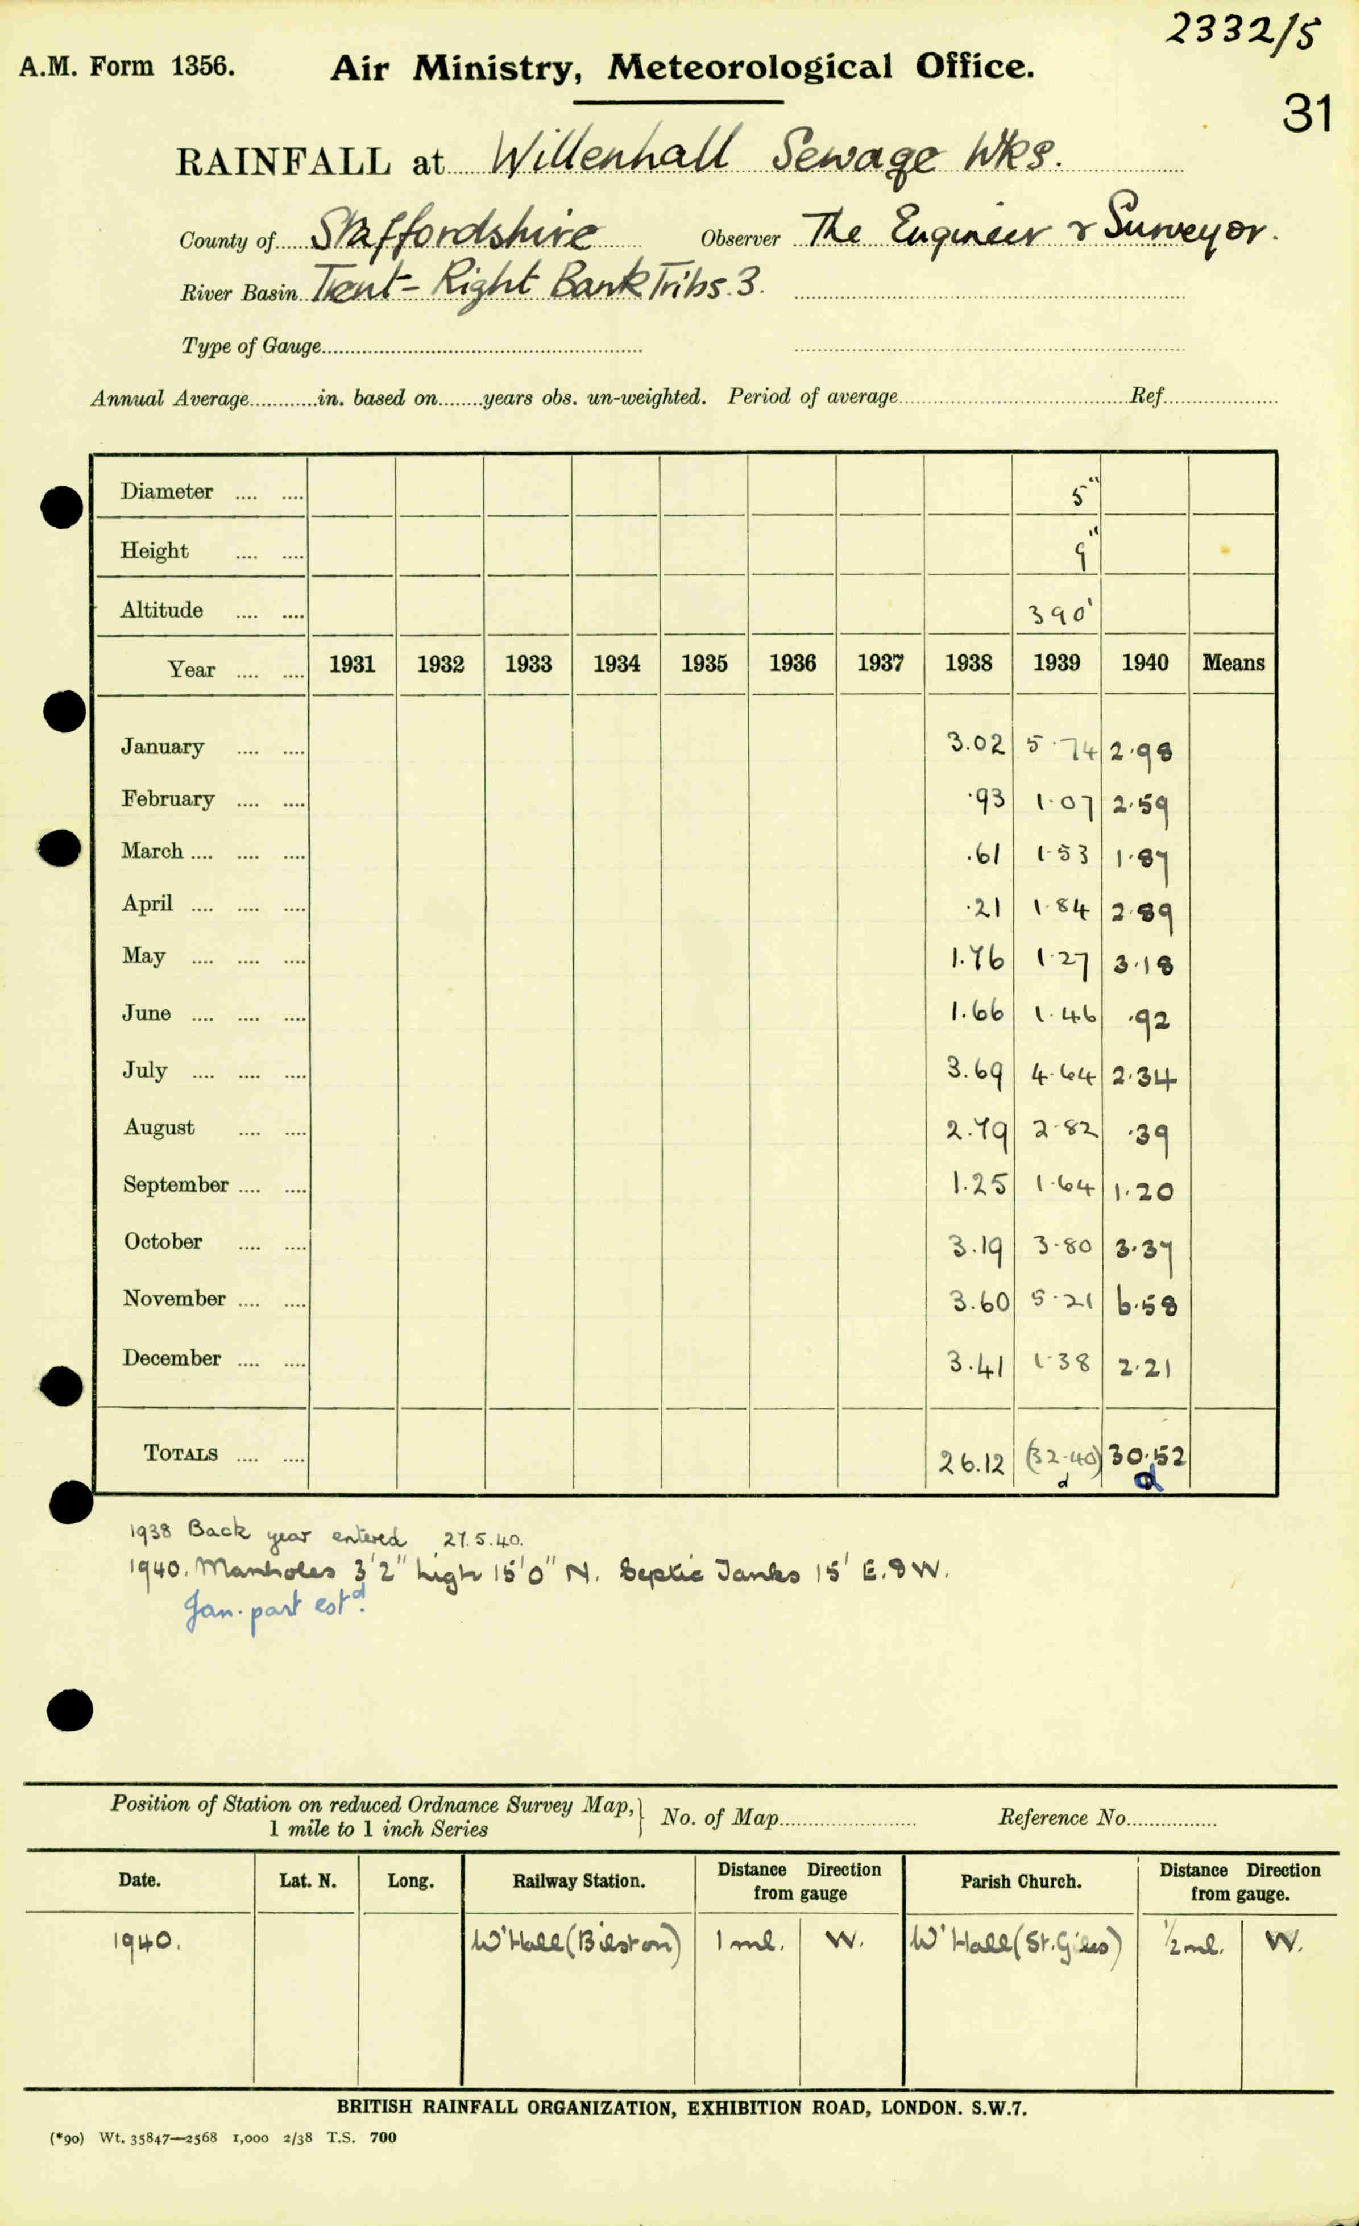 2332/5
A.M. Form 1356. Air Ministry, Meteorological Office.
31
RAINFALL at Willenhall Sewage Wks.
County of Staffordshire Observer The Engineer & Surveyor.
River Basin Trent - Right Bank Tribs. 3.
Type of Gauge
Annual Average in. based on years obs. un-weighted. Period of average Ref.
Diameter 5"
Height 9"
Altitude 390'
Year 1931 1932 1933 1934 1935 1936 1937 1938 1939 1940 Means
January 3.02 5.74 2.98
February .93 1.07 2.59
March .61 1.53 1.87
April .21 1.84 2.89
May 1.76 1.27 3.18
June 1.66 1.46 .92
July 3.69 4.64 2.34
August 2.79 2.82 .39
September 1.25 1.64 1.20
October 3.19 3.80 3.37
November 3.60 5.21 6.58
December 3.41 1.38 2.21
TOTALS 26.12 (32.40) 30.52
d d
1938 Back year entered 27.5.40.
1940. Manholes 3'2" high 15'0" N. Septic Tanks 15' E. & W.
Jan. part estd.
Position of Station on reduced Ordnance Survey Map, } No. of Map Reference No.
1 mile to 1 inch Series
Date. Lat. N. Long. Railway Station. Distance Direction from gauge Parish Church. Distance Direction from gauge.
1940. W'Hall (Bilston) 1 ml. W. W'Hall (St. Giles) 1/2 ml. W.
BRITISH RAINFALL ORGANIZATION, EXHIBITION ROAD, LONDON. S.W.7.
(*90) Wt. 35847—2568 1,000 2/38 T.S. 700